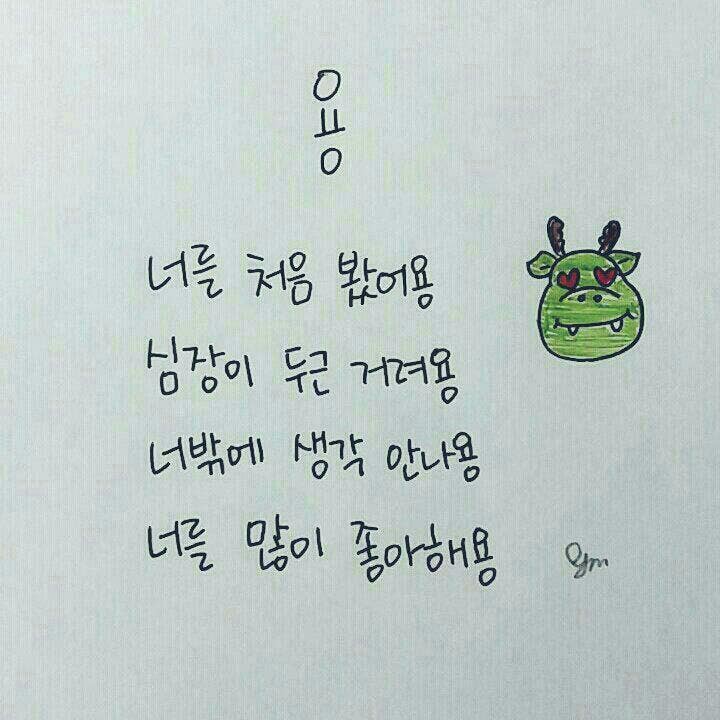 용
너를 처음 봤어용
심장이 두근 거려용
너밖에 생각 안나용
너를 많이 좋아해용